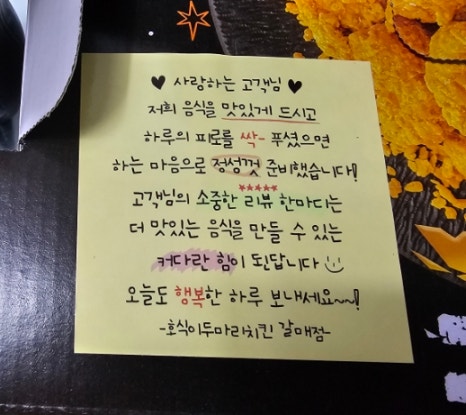 ♥ 사랑하는 고객님 ♥
저희 음식을 맛있게 드시고
하루의 피로를 싹- 푸셨으면
하는 마음으로 정성껏 준비했습니다!
★★★★★
고객님의 소중한 리뷰 한마디는
더 맛있는 음식을 만들 수 있는
커다란 힘이 된답니다 ☺
오늘도 행복한 하루 보내세요~~!
-호식이두마리치킨 갈매점-